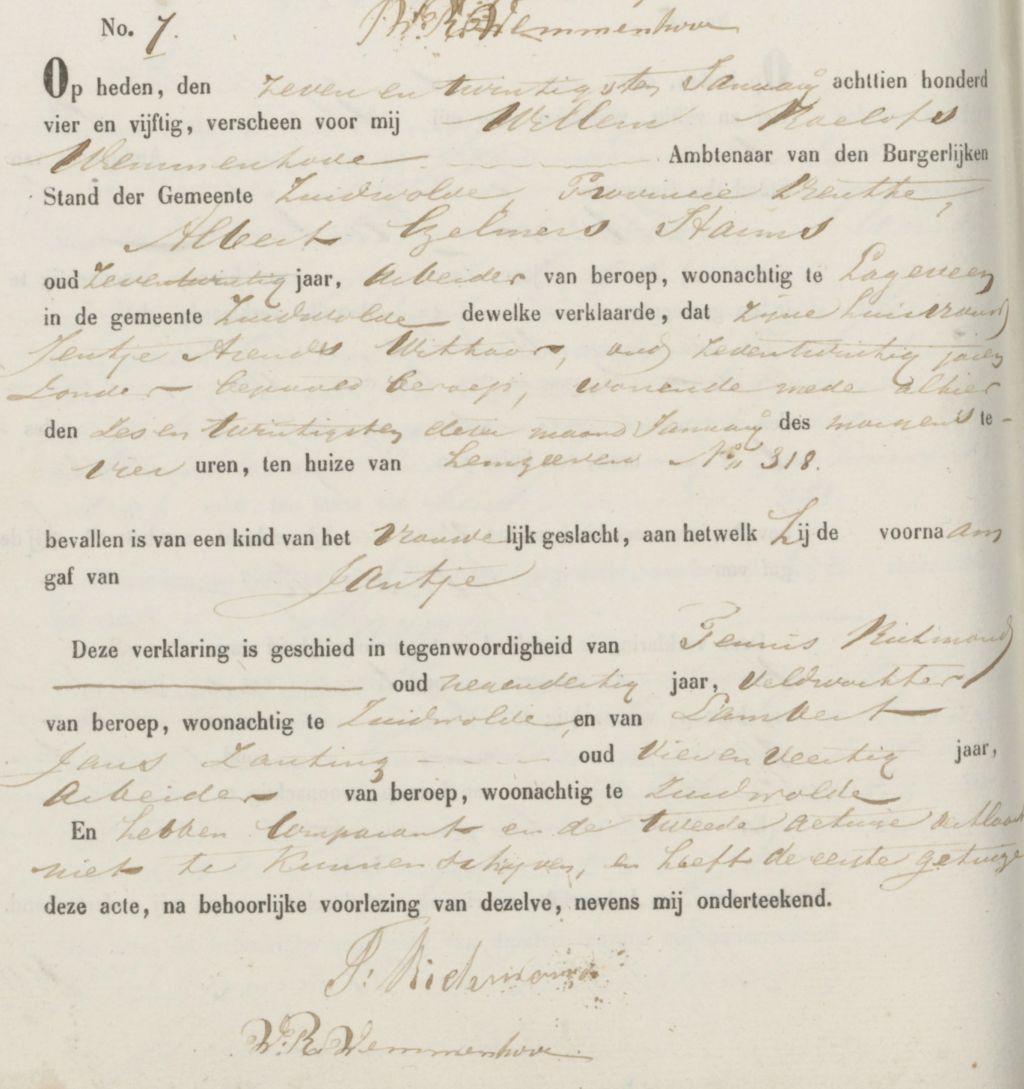 No. 7. W. R. Wemmenhove
Op heden, den zeven en twintigsten Januarij achttien honderd
vier en vijftig, verscheen voor mij Willem Roelofs
Wemmenhove Ambtenaar van den Burgerlijken
Stand der Gemeente Zuidwolde, Provincie Drenthe,
Albert Egelmers Haims
oud zeventwintig jaar, Arbeider van beroep, woonachtig te Lageveen
in de gemeente Zuidwolde dewelke verklaarde, dat zijne huisvrouw
Jentje Arends Withaar, oud zeventwintig jaren
zonder bepaald beroep, wonende mede alhier
den zes en twintigsten dezer maand Januarij des morgens te
vier uren, ten huize van No. 318.
bevallen is van een kind van het vrouwelijk geslacht, aan hetwelk Hij de voornaam
gaf van Jantje
Deze verklaring is geschied in tegenwoordigheid van Teunis
oud negendertig jaar, Veldwachter
van beroep, woonachtig te Zuidwolde en van Lambert
Jans Zanting oud vier en veertig jaar,
Arbeider van beroep, woonachtig te Zuidwolde
En hebben Comparant en de tweede getuige verklaard
niet te kunnen schrijven, en heeft de eerste getuige
deze acte, na behoorlijke voorlezing van dezelve, nevens mij onderteekend.
T: Ridemond
W. R. Wemmenhove